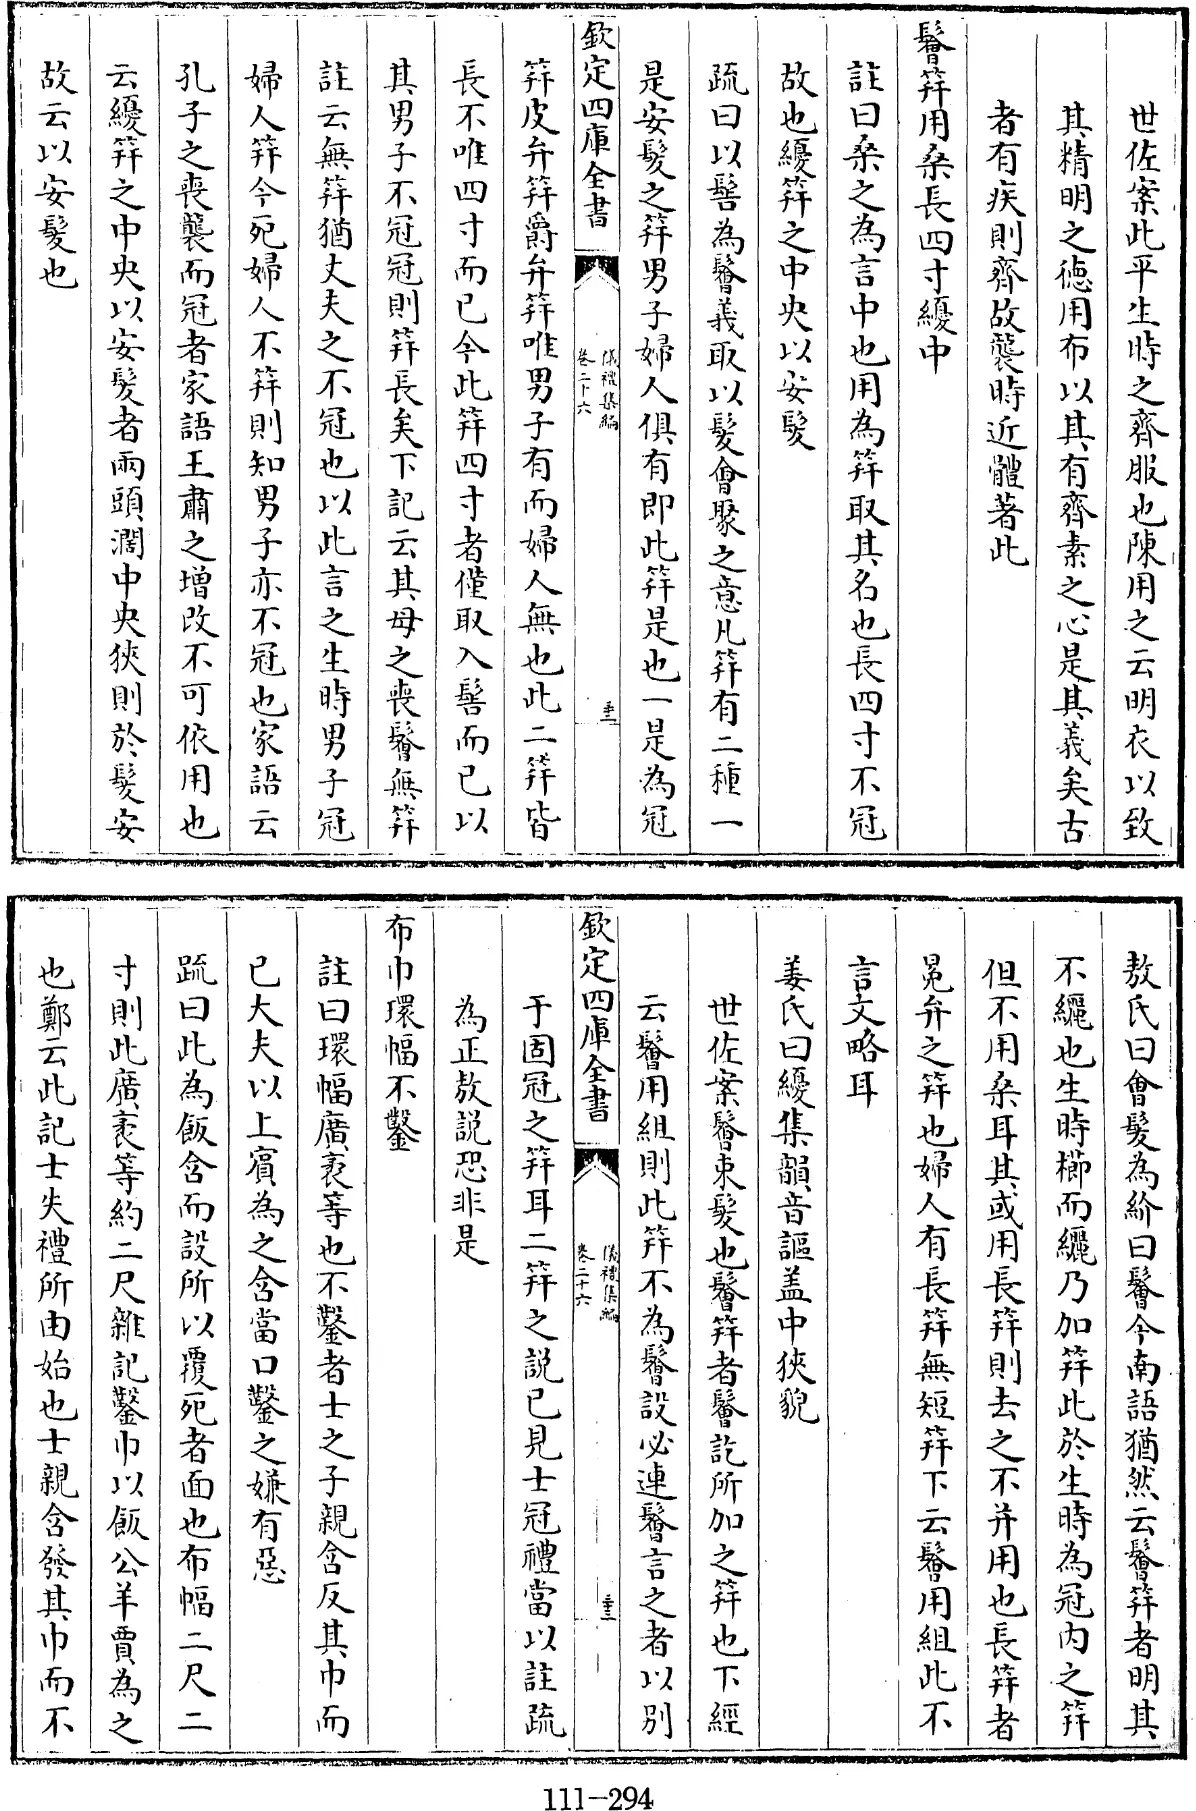 世佐案此平生時之齊服也陳用之云明衣以致
其精明之德用布以其有齊素之心是其義矣古
者有疾則齊故襲時近體著此
鬠笄用桑長四寸纋中
註曰桑之為言中也用為笄取其名也長四寸不冠
故也纋笄之中央以安髮
疏曰以髻為鬠義取以髮會聚之意凡笄有二種一
是安髮之笄男子婦人俱有即此笄是也一是為冠
欽定四庫全書
儀禮集編
卷二十六
笄皮弁笄爵弁笄唯男子有而婦人無也此二笄皆
長不唯四寸而已今此笄四寸者僅取入髻而已以
其男子不冠冠則笄長矣下記云其母之喪鬠無笄
註云無笄猶丈夫之不冠也以此言之生時男子冠
婦人笄今死婦人不笄則知男子亦不冠也家語云
孔子之喪襲而冠者家語王肅之增改不可依用也
云纋笄之中央以安髮者兩頭濶中央狹則於髮安
故云以安髮也
敖氏曰會髮為紒曰鬠今南語猶然云鬠笄者明其
不纚也生時櫛而纚乃加笄此於生時為冠内之笄
但不用桑耳其或用長笄則去之不并用也長笄者
冕弁之笄也婦人有長笄無短笄下云鬠用組此不
言文略耳
姜氏曰纋集韻音謳盖中狹貌
世佐案鬠束髮也鬠笄者鬠訖所加之笄也下經
云鬠用組則此笄不為鬠設必連鬠言之者以別
欽定四庫全書
儀禮集編
卷二十六
于固冠之笄耳二笄之説已見士冠禮當以註疏
為正敖説恐非是
布巾環幅不鑿
註曰環幅廣袤等也不鑿者士之子親含反其巾而
已大夫以上賓為之含當口鑿之嫌有惡
疏曰此為飯含而設所以覆死者面也布幅二尺二
寸則此廣袤等約二尺雜記鑿巾以飯公羊賈為之
也鄭云此記士失禮所由始也士親含發其巾而不
111-294